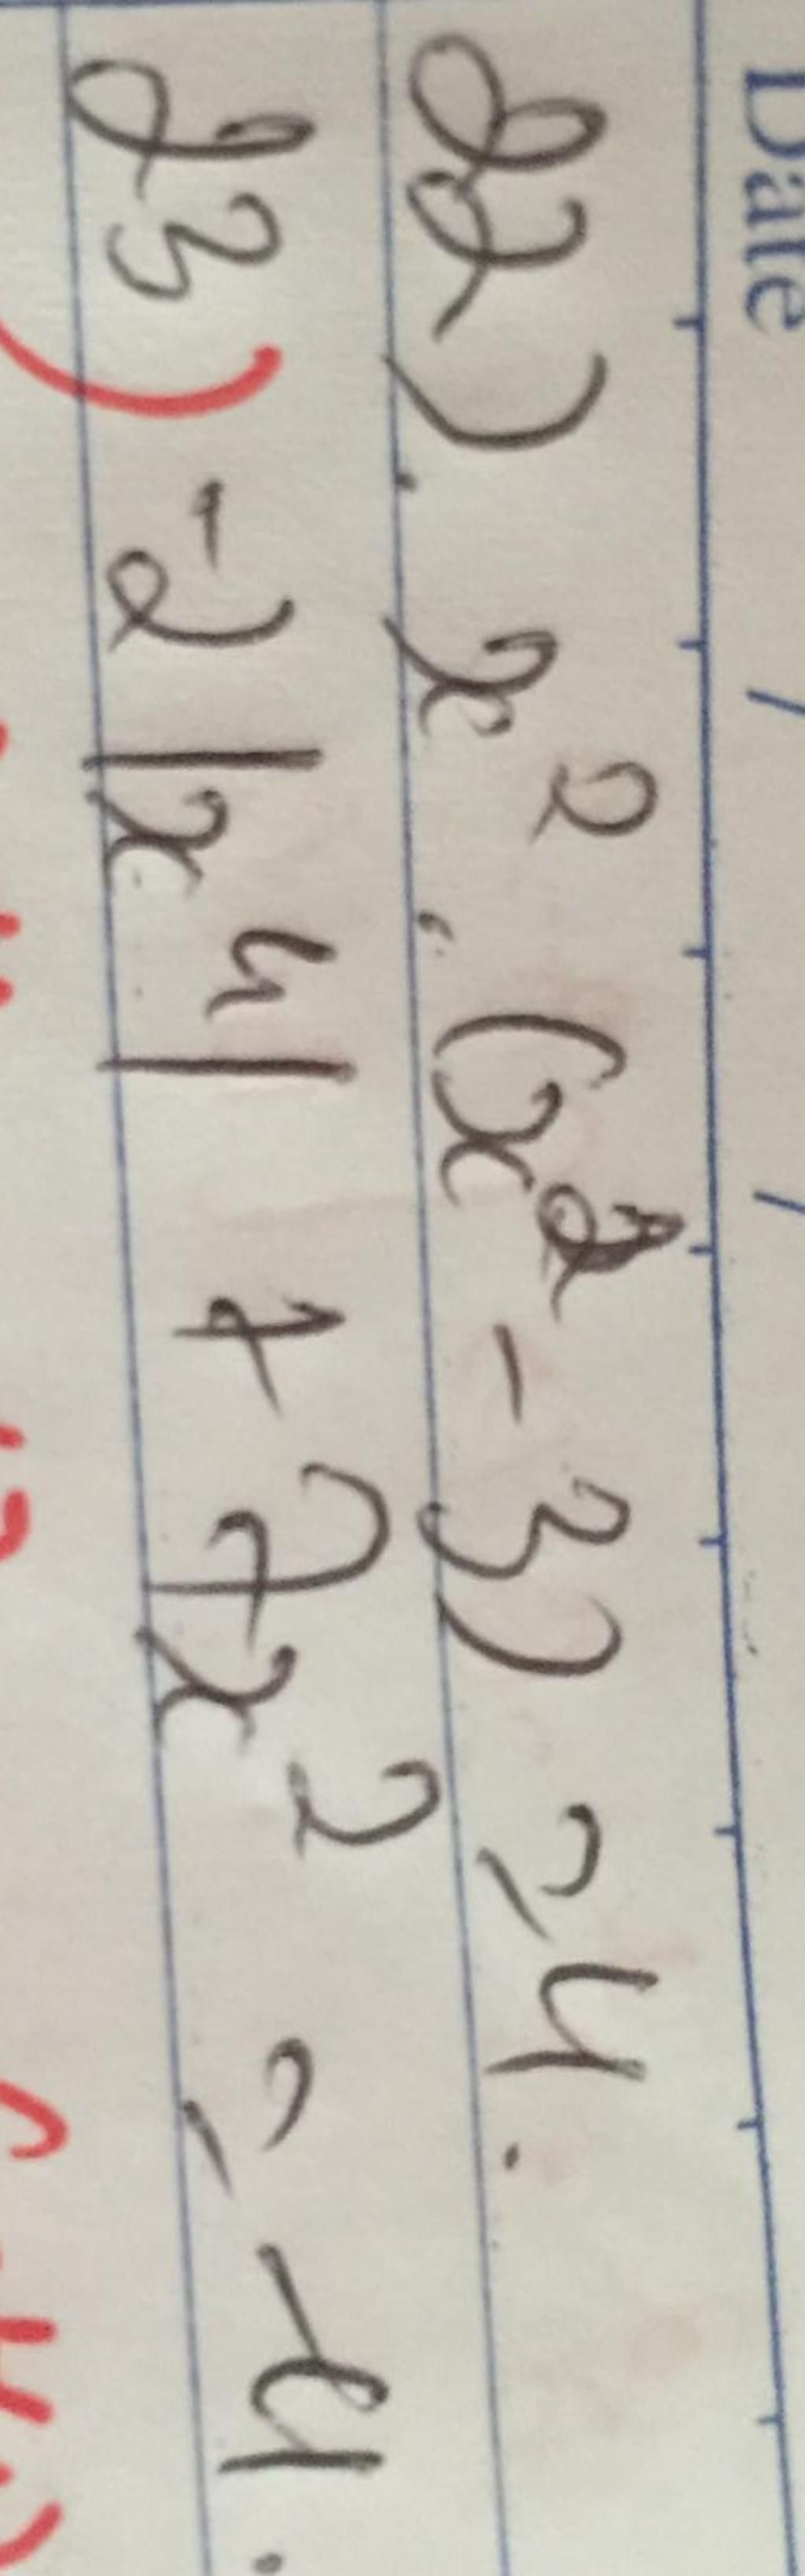 Date / /
22). x² . (x² - 3) = 4.
23) -2 |x⁴| + 7x² = -4.